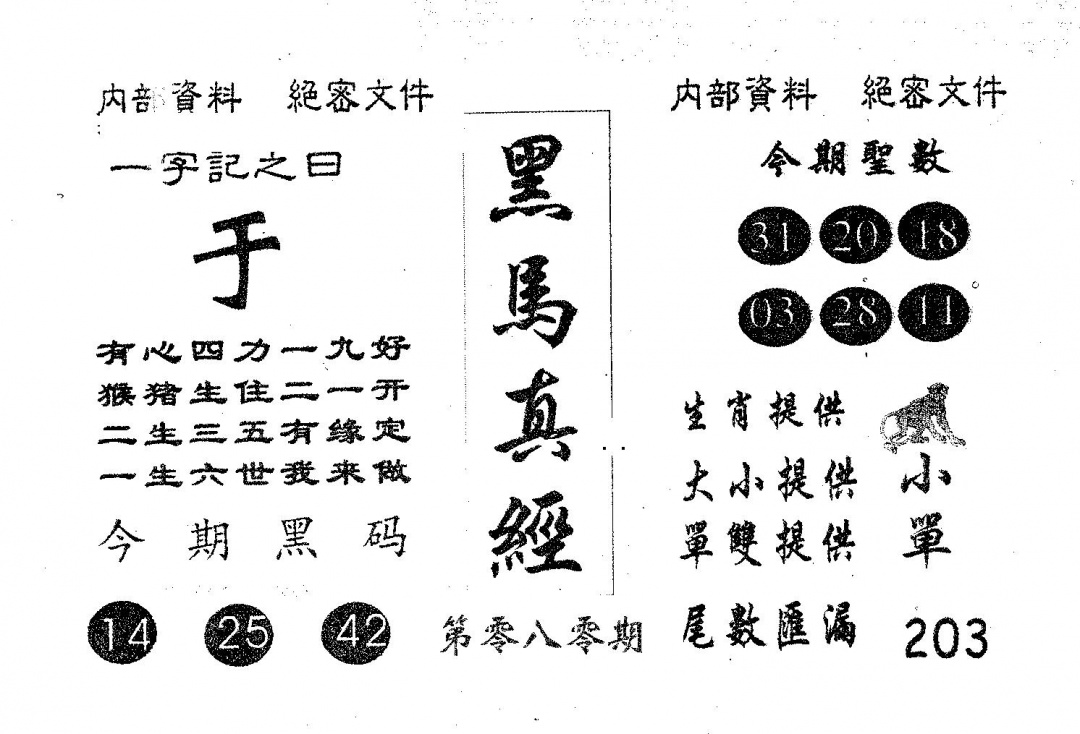 内部資料 絕密文件
一字記之曰
于
有心四力一九好
猴猪生住二一开
二生三五有緣定
一生六世我来做
今期黑码
14 25 42
黑馬真經
第零八零期
内部資料 絕密文件
今期聖數
31 20 18
03 28 11
生肖提供
大小提供 小
單雙提供 單
尾數匯漏 203